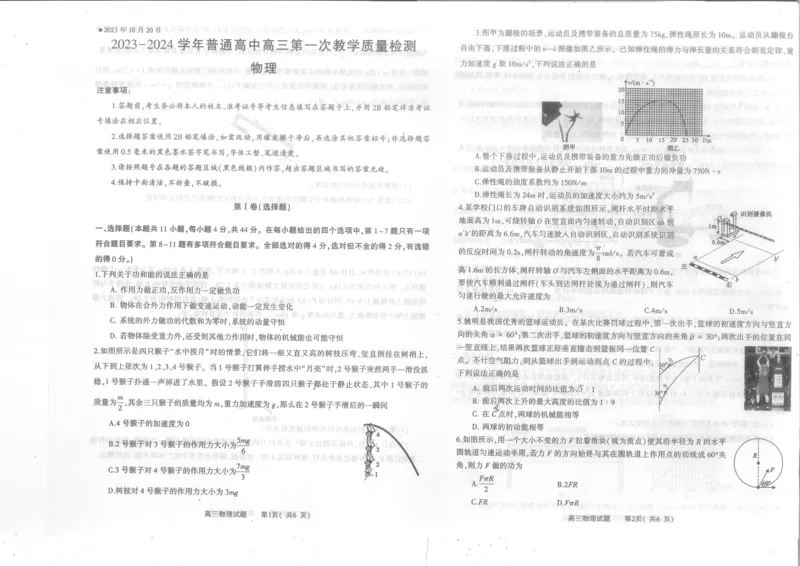 ★2023年10月20日
2023-2024学年普通高中高三第一次教学质量检测
物理
注意事项:
1.答题前,考生务必将本人的姓名、准考证号等考生信息填写在答题卡上,并用2B铅笔将准考证
号填涂在相应位置。
2.选择题答案使用2B铅笔填涂,如需改动,用橡皮擦干净后,再选涂其他答案标号;非选择题答
案使用0.5毫米的黑色墨水签字笔书写,字体工整、笔迹清楚。
3.请按照题号在各题的答题区域(黑色线框)内作答,超出答题区域书写的答案无效。
4.保持卡面清洁,不折叠,不破损。
第Ⅰ卷(选择题)
一、选择题(本题共11小题,每小题4分,共44分。在每小题给出的四个选项中,第1~7题只有一项
符合题目要求。第8~11题有多项符合题目要求。全部选对的得4分,选对但不全的得2分,有选错
的得0分。)
1.下列关于功和能的说法正确的是
A. 作用力做正功,反作用力一定做负功
B. 物体在合外力作用下做变速运动,动能一定发生变化
C. 系统的外力做功的代数和为零时,系统的动量守恒
D. 若物体除受重力外,还受到其他力作用时,物体的机械能也可能守恒
2.如图所示是四只猴子“水中捞月”时的情景,它们将一根又直又高的树枝压弯,竖直倒挂在树梢上,
从下到上依次为1、2、3、4号猴子。当1号猴子打算伸手捞水中“月亮”时,2号猴子突然两手一滑没抓
稳,1号猴子扑通一声掉进了水里。假设2号猴子手滑前四只猴子都处于静止状态,其中1号猴子的
质量为m/2,其余三只猴子的质量均为m,重力加速度为g,那么在2号猴子手滑后的一瞬间
A.4号猴子的加速度为0
B.2号猴子对3号猴子的作用力大小为5mg/6
C.3号猴子对4号猴子的作用力大小为7mg/3
D.树枝对4号猴子的作用力大小为3mg
4
3
2
1
高三物理试题 第1页( 共6 页)
3.图甲为蹦极的场景,运动员及携带装备的总质量为75kg,弹性绳原长为10m。运动员从蹦极台
自由下落,下落过程中的v—l图像如图乙所示。已知弹性绳的弹力与伸长量的关系符合胡克定律,重
力加速度g取10m/s²,下列说法正确的是
v/(m·s⁻¹)
20
15
10
5
0 5 10 15 20 25 30 l/m
图甲 图乙
A.整个下落过程中,运动员及携带装备的重力先做正功后做负功
B.运动员及携带装备从静止开始下落10m的过程中重力的冲量为750N·s
C.弹性绳的劲度系数约为150N/m
D.弹性绳长为24m时,运动员的加速度大小约为5m/s²
4.某学校门口的车牌自动识别系统如图所示,闸杆水平时距水平
地面高为1m,可绕转轴O在竖直面内匀速转动,自动识别区ab到
a′b′的距离为6.6m,汽车匀速驶入自动识别区,自动识别系统识别
的反应时间为0.2s,闸杆转动的角速度为π/8rad/s。若汽车可看成
高1.6m的长方体,闸杆转轴O与汽车左侧面的水平距离为0.6m。
要使汽车顺利通过闸杆(车头到达闸杆处视为通过闸杆),则汽车
匀速行驶的最大允许速度为
识别摄像机
1m
0.6m
左
右
a
b
a′
b′
A.2m/s B.3m/s C.4m/s D.5m/s
5.姚明是我国优秀的篮球运动员。在某次比赛罚球过程中,第一次出手,篮球的初速度方向与竖直方
向的夹角α = 60°;第二次出手,篮球的初速度方向与竖直方向的夹角β = 30°;两次出手的位置在同
一竖直线上,结果两次篮球正好垂直撞击到篮板同一位置C
点。不计空气阻力,则从篮球出手到运动到点C的过程中,
下列说法正确的是
A. 前后两次运动时间的比值为√3∶1
B. 前后两次上升的最大高度的比值为1∶9
C. 在C点时,两球的机械能相等
D. 两球的初动能相等
60°
30°
C
6.如图所示,用一个大小不变的力F拉着滑块(视为质点)使其沿半径为R的水平
圆轨道匀速运动半周,若力F的方向始终与其在圆轨道上作用点的切线成60°夹
角,则力F做的功为
A.FπR/2 B.2FR
C.FR D.FπR
R
F
60°
高三物理试题 第2页( 共6 页)